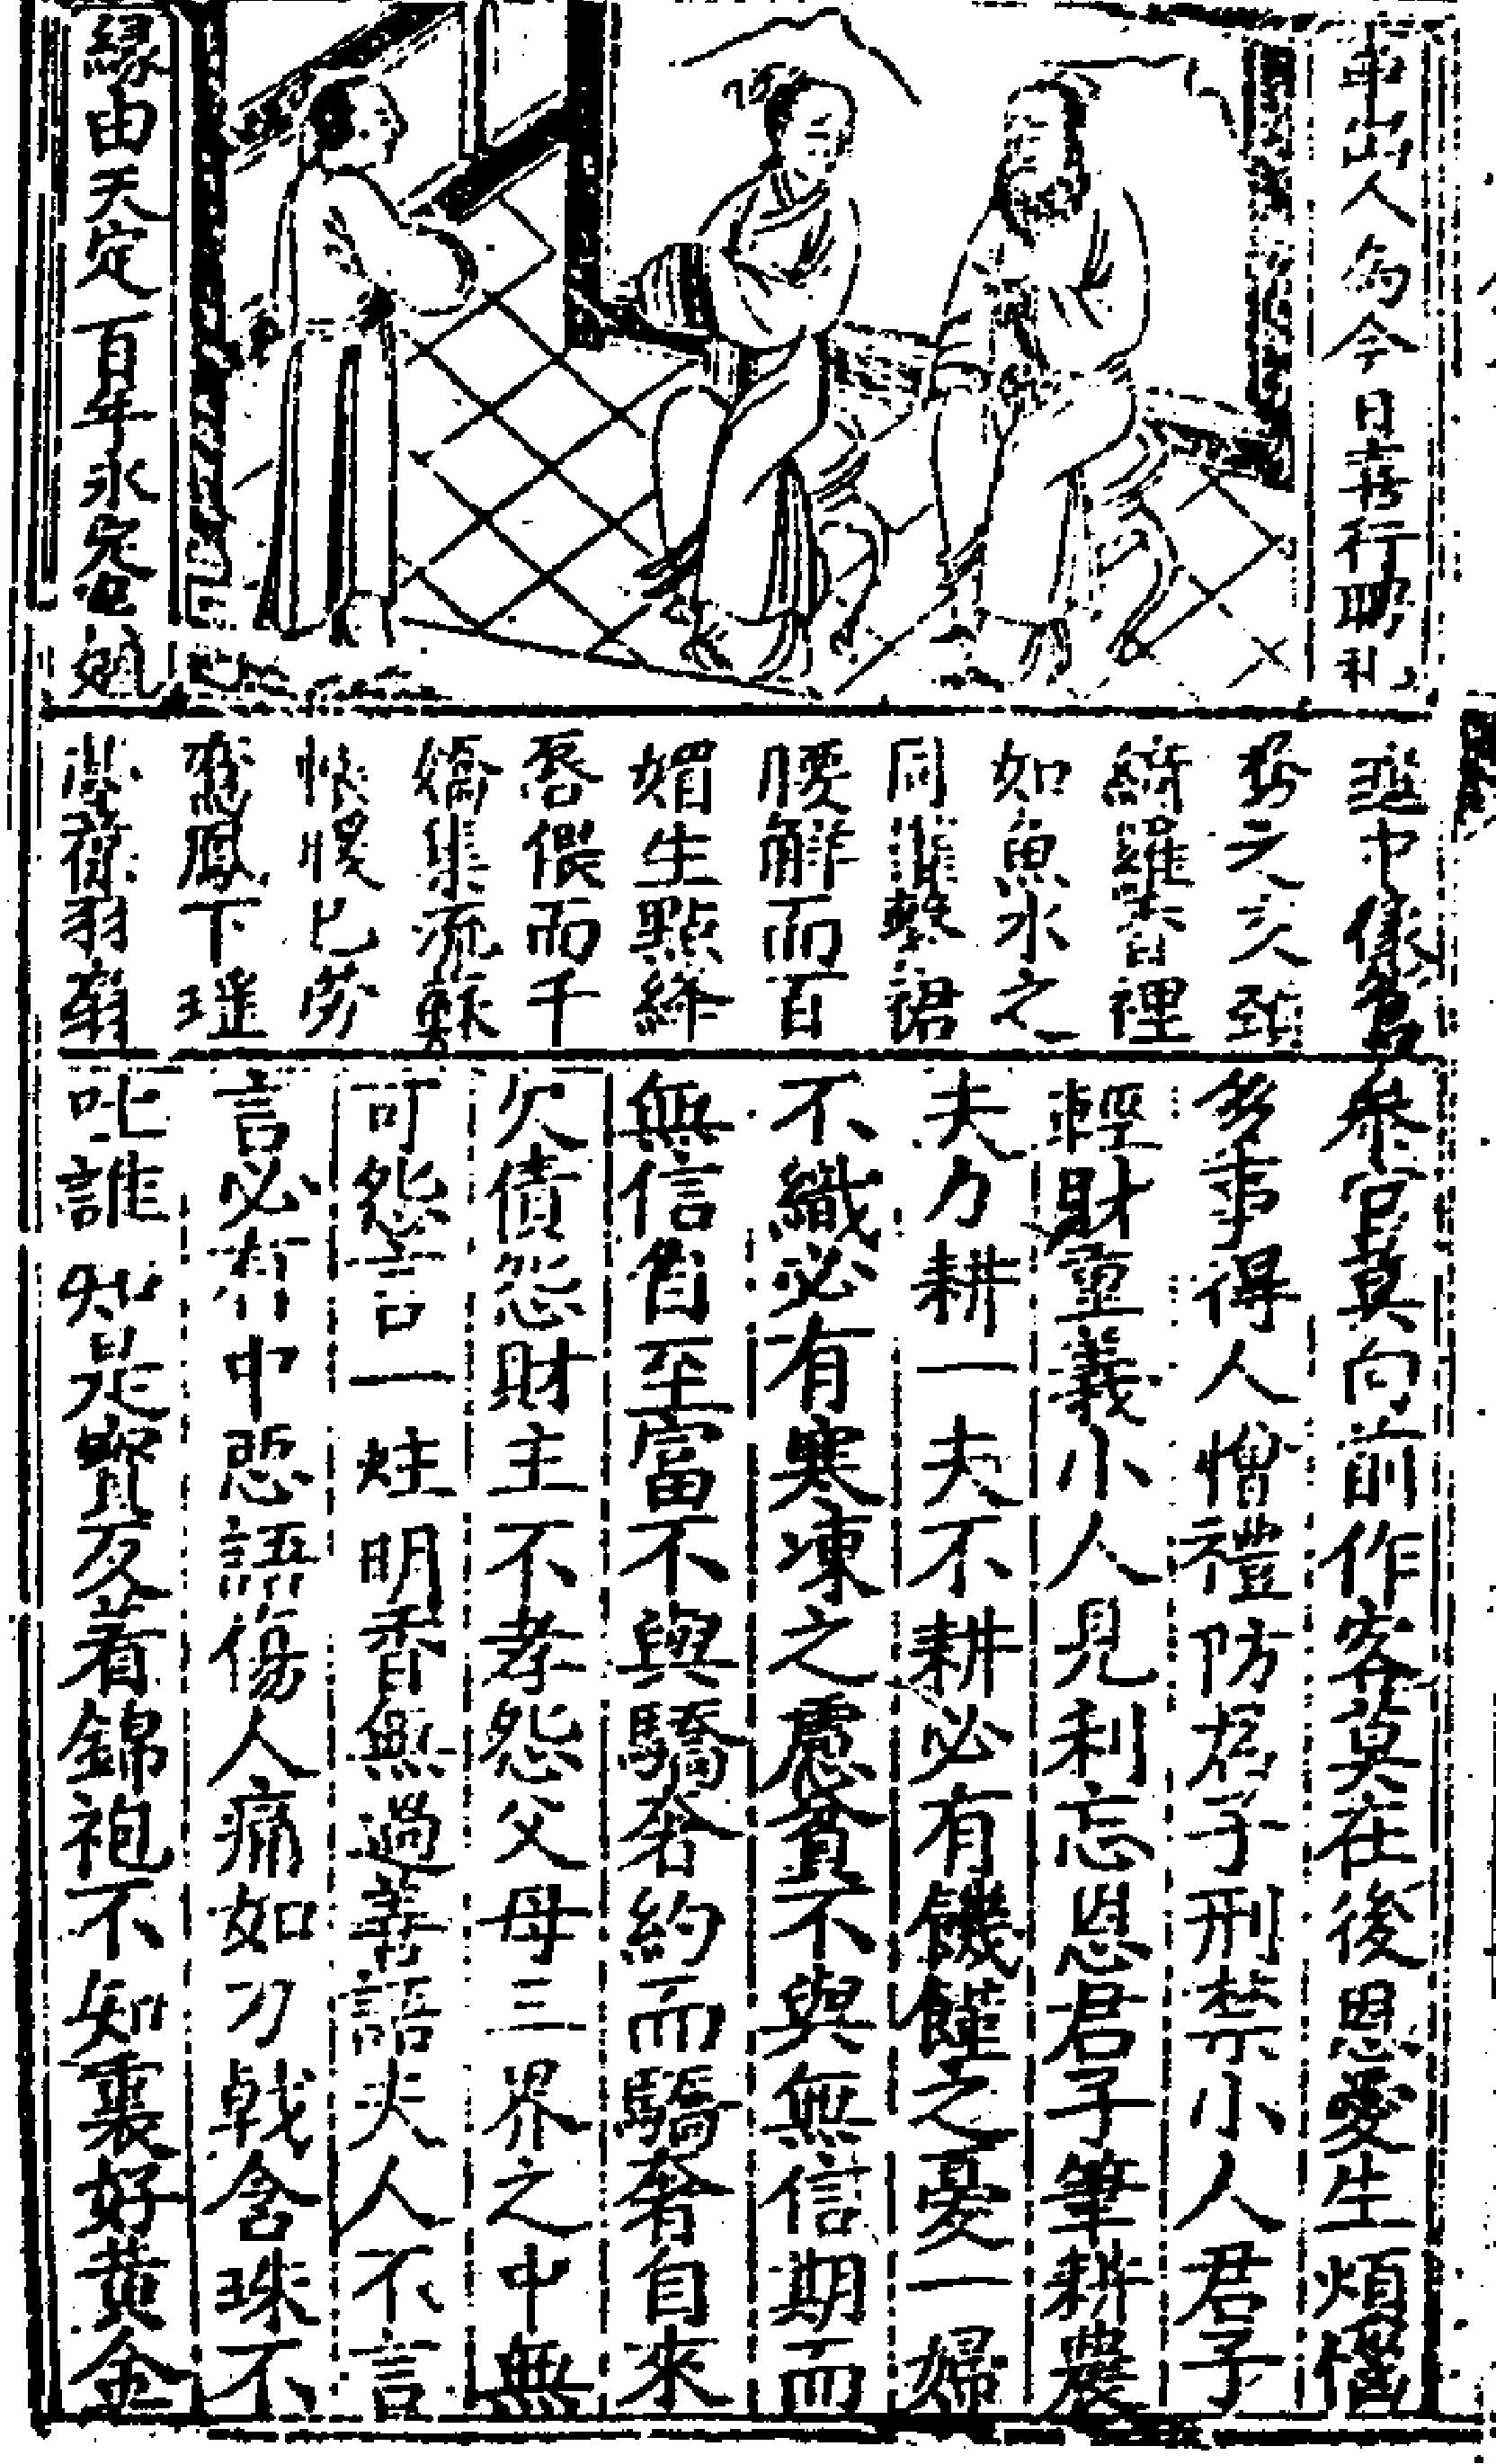 山人為今日喜行聘礼
緣由天定百年永定
如魚水之
同諧繫裙
腰解而百
媚生點絳
唇偎而千
嬌集流蘇
帳煖已勞
鳳下瑤
參官莫向前作客莫在後恩愛生煩惱
多事得人憎禮防君子刑禁小人君子
輕財重義小人見利忘恩君子筆耕農
夫力耕一夫不耕必有饑饉之憂一婦
不織必有寒凍之慮貧不與無信期而
無信自至富不與驕奢約而驕奢自來
欠債怨財主不孝怨父母三界之中無
可怨言一炷明香無過善語夫人不言
言必有中惡語傷人痛如刀戟含珠不
吐誰知是寶反着錦袍不知裏好黃金